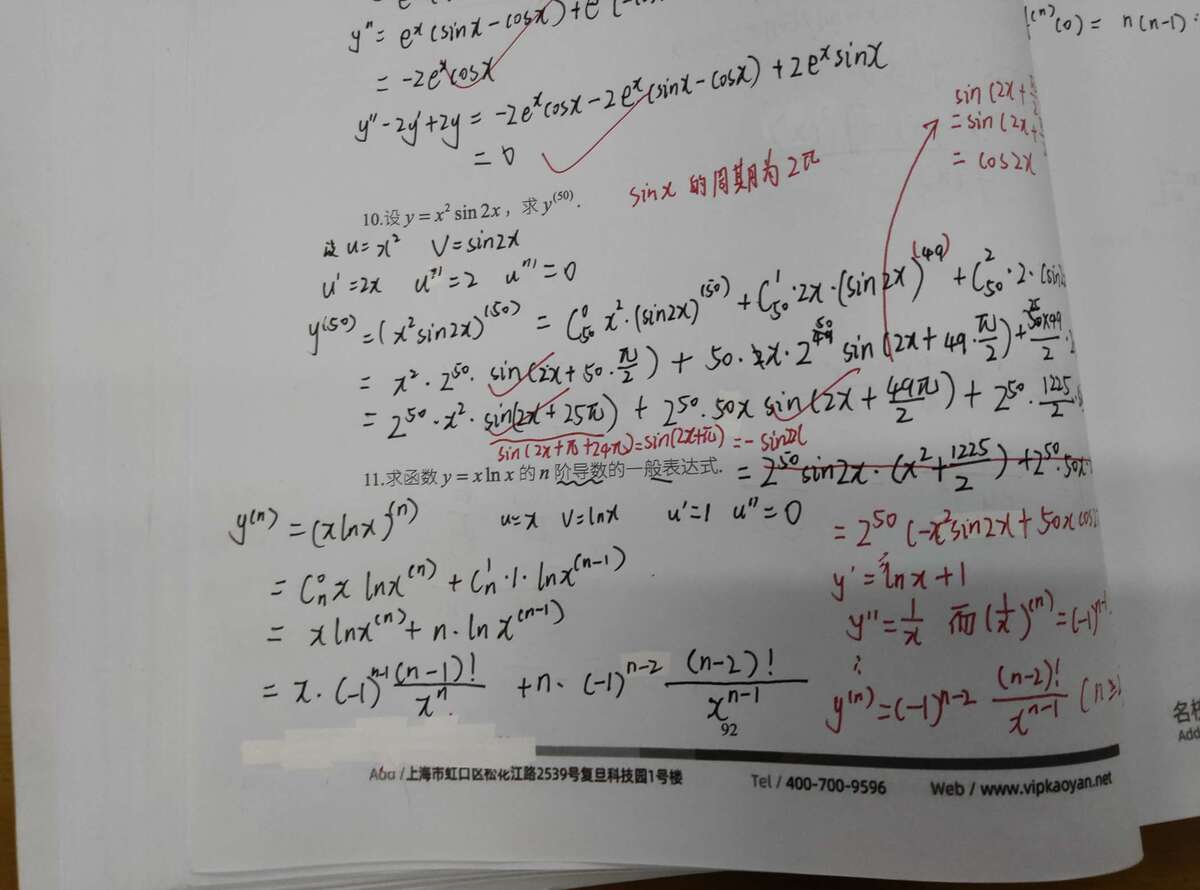 y''= eˣ(sinx-cosx)+e
= -2eˣcosx
y''-2y'+2y = -2eˣcosx-2eˣ(sinx-cosx)+2eˣsinx
= 0
⁽ⁿ⁾(0) = n(n-1)
sin(2x+
=sin(2x+
= cos2x
sinx 的周期为2π
10.设 y = x² sin 2x，求 y⁽⁵⁰⁾.
设 u=x² V=sin2x
u'=2x u''=2 u'''=0
y⁽⁵⁰⁾=(x²sin2x)⁽⁵⁰⁾ = C₅₀⁰x²·(sin2x)⁽⁵⁰⁾+C₅₀¹·2x·(sin2x)⁽⁴⁹⁾+C₅₀²·2·(sin
= x²·2⁵⁰·sin(2x+50·π/2) + 50·x·2⁵⁰ sin(2x+49·π/2)+50×49/2·2
= 2⁵⁰·x²·sin(2x+25π) + 2⁵⁰·50x sin(2x+49π/2)+2⁵⁰·1225/2
sin(2x+π+24π)=sin(2x+π)=-sin2x
= 2⁵⁰sin2x·(x²+1225/2)+2⁵⁰·50x
= 2⁵⁰(-x²sin2x+50xcos
11.求函数 y = x ln x 的 n 阶导数的一般表达式.
y⁽ⁿ⁾=(xlnx)⁽ⁿ⁾ u=x V=lnx u'=1 u''=0
= Cₙ⁰x lnx⁽ⁿ⁾+Cₙ¹·1·lnx⁽ⁿ⁻¹⁾
= xlnx⁽ⁿ⁾+n·lnx⁽ⁿ⁻¹⁾
= x·(-1)ⁿ⁻¹(n-1)!/xⁿ +n·(-1)ⁿ⁻²(n-2)!/xⁿ⁻¹
y'=lnx+1
y''=1/x 而(1/x)⁽ⁿ⁾=(-1)ⁿ
⋮
y⁽ⁿ⁾=(-1)ⁿ⁻²(n-2)!/xⁿ⁻¹ (n≥
92
/上海市虹口区松花江路2539号复旦科技园1号楼 Tel / 400-700-9596 Web / www.vipkaoyan.net
Add